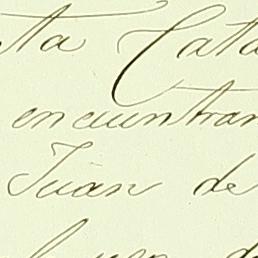 ta Cata
encuentran
Juan de